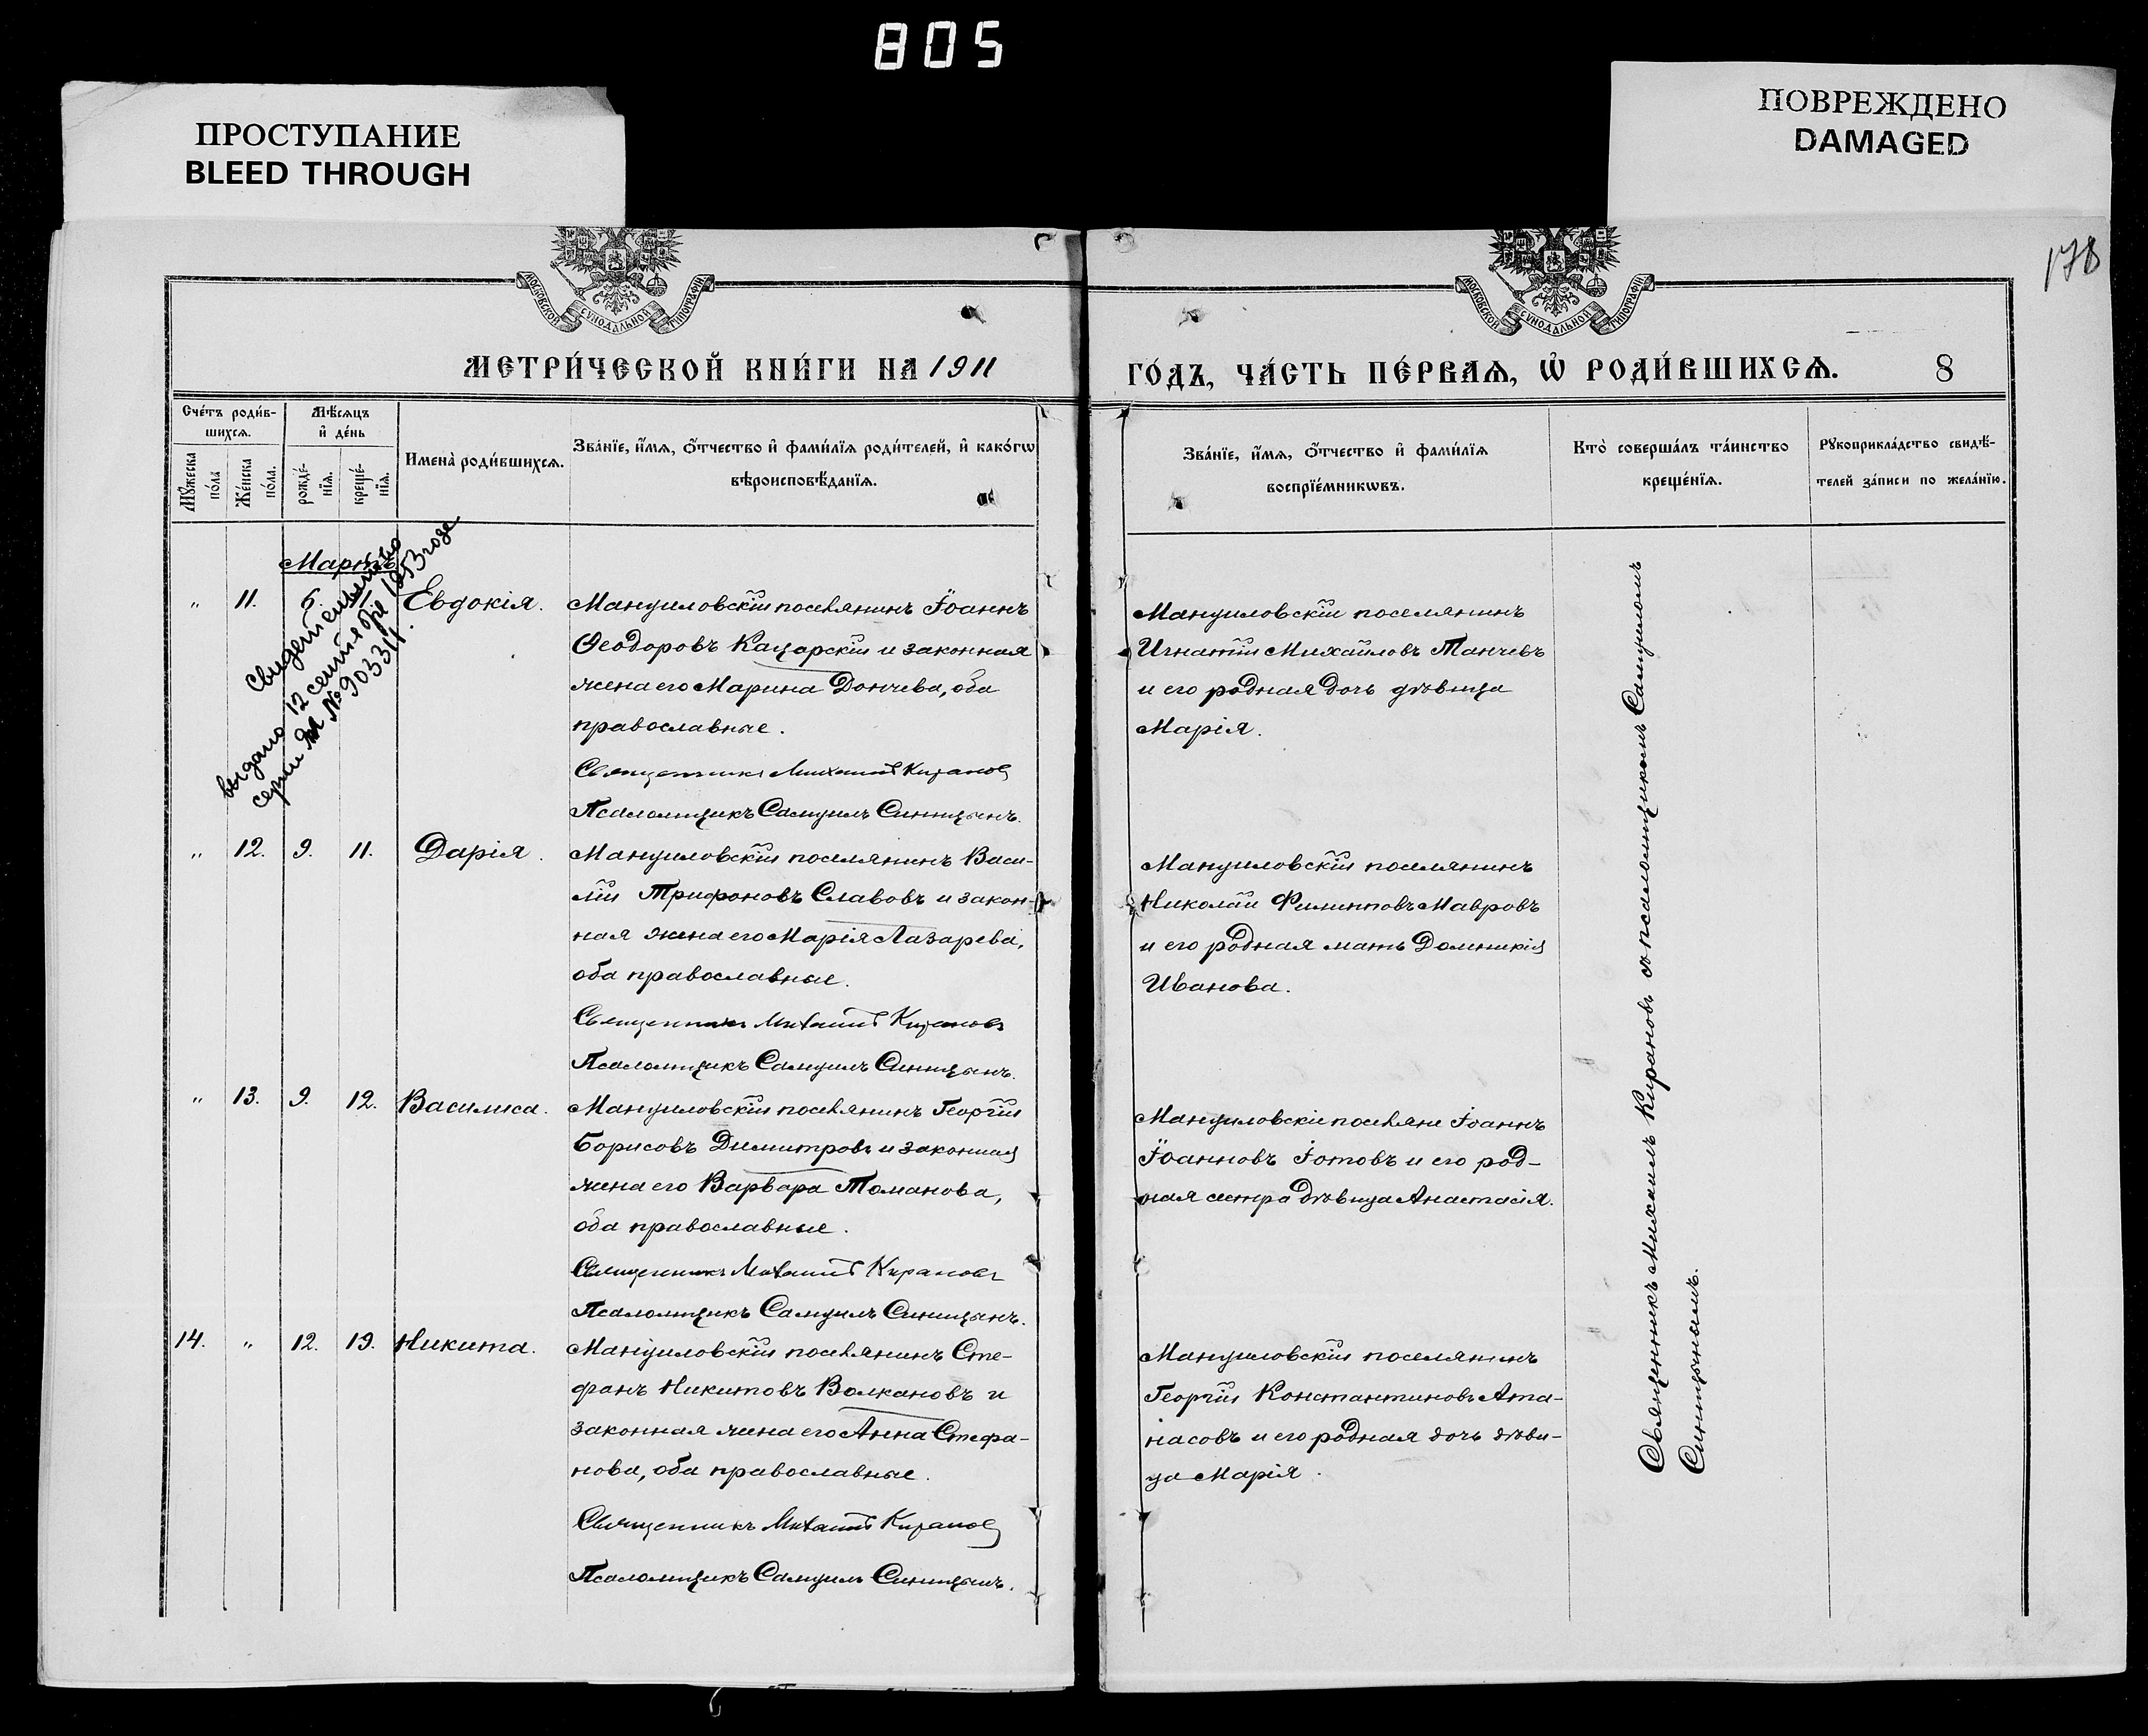 805
ПРОСТУПАНИЕ
BLEED THROUGH
ПОВРЕЖДЕНО
DAMAGED
178
МОСКОВСКОЙ СѴНОДАЛЬНОЙ ТИПОГРАФІИ
МОСКОВСКОЙ СѴНОДАЛЬНОЙ ТИПОГРАФІИ
МЕТРИ́ЧЕСКОЙ КНИ́ГИ НА 1911
ГО́ДЪ, ЧА́СТЬ ПЕ́РВАѦ, Ѡ҆ РОДИ́ВШИХСѦ. 8
Сче́тъ роди́в-
шихсѧ.
Мꙋ́жеска
по́ла
Же́нска
по́ла.
Мѣ́сѧцъ
и҆ де́нь
рожде́-
нїѧ.
креще́-
нїѧ.
Имена̀ роди́вшихсѧ.
Зва́нїе, и҆́мѧ, ѻ҆́тчество и҆ фами́лїѧ роди́телей, и҆ како́гѡ
вѣроисповѣ́данїѧ.
Зва́нїе, и҆́мѧ, ѻ҆́тчество и҆ фами́лїѧ
воспрїе́мникѡвъ.
Кто̀ соверша́лъ та́инство
креще́нїѧ.
Рꙋкоприкла́дство свидѣ́-
телей за́писи по жела́нїю.
Мартъ
Свидетельство
выдано 12 сентября 1953 года
серии № 903311.
" 11. 6. Евдокія.
Мануиловскій поселянинъ Іоаннъ
Ѳеодоровъ Кацарскій и законная
жена его Марина Дончева, оба
православные.
Священникъ Михаилъ Кирановъ
Псаломщикъ Самуилъ Синицынъ.
Мануиловскій поселянинъ
Игнатій Михайловъ Танчевъ
и его родная дочь дѣвица
Марія.
" 12. 9. 11. Дарія.
Мануиловскій поселянинъ Васи-
лій Трифоновъ Славовъ и закон-
ная жена его Марія Лазарева,
оба православные.
Священникъ Михаилъ Кирановъ
Псаломщикъ Самуилъ Синицынъ.
Мануиловскій поселянинъ
Николай Филипповъ Мавровъ
и его родная мать Домникія
Иванова.
" 13. 9. 12. Василиса.
Мануиловскій поселянинъ Георгій
Борисовъ Димитровъ и законная
жена его Варвара Томанова,
оба православные.
Священникъ Михаилъ Кирановъ
Псаломщикъ Самуилъ Синицынъ.
Мануиловскіе поселяне Іоаннъ
Іоанновъ Іотовъ и его род-
ная сестра дѣвица Анастасія.
14. " 12. 19. Никита.
Мануиловскій поселянинъ Сте-
фанъ Никитовъ Волкановъ и
законная жена его Анна Стефа-
нова, оба православные.
Священникъ Михаилъ Кирановъ
Псаломщикъ Самуилъ Синицынъ.
Мануиловскій поселянинъ
Георгій Константиновъ Ата-
насовъ и его родная дочь дѣви-
ца Марія.
Священникъ Михаилъ Кирановъ съ псаломщикомъ Самуиломъ
Синицынымъ.